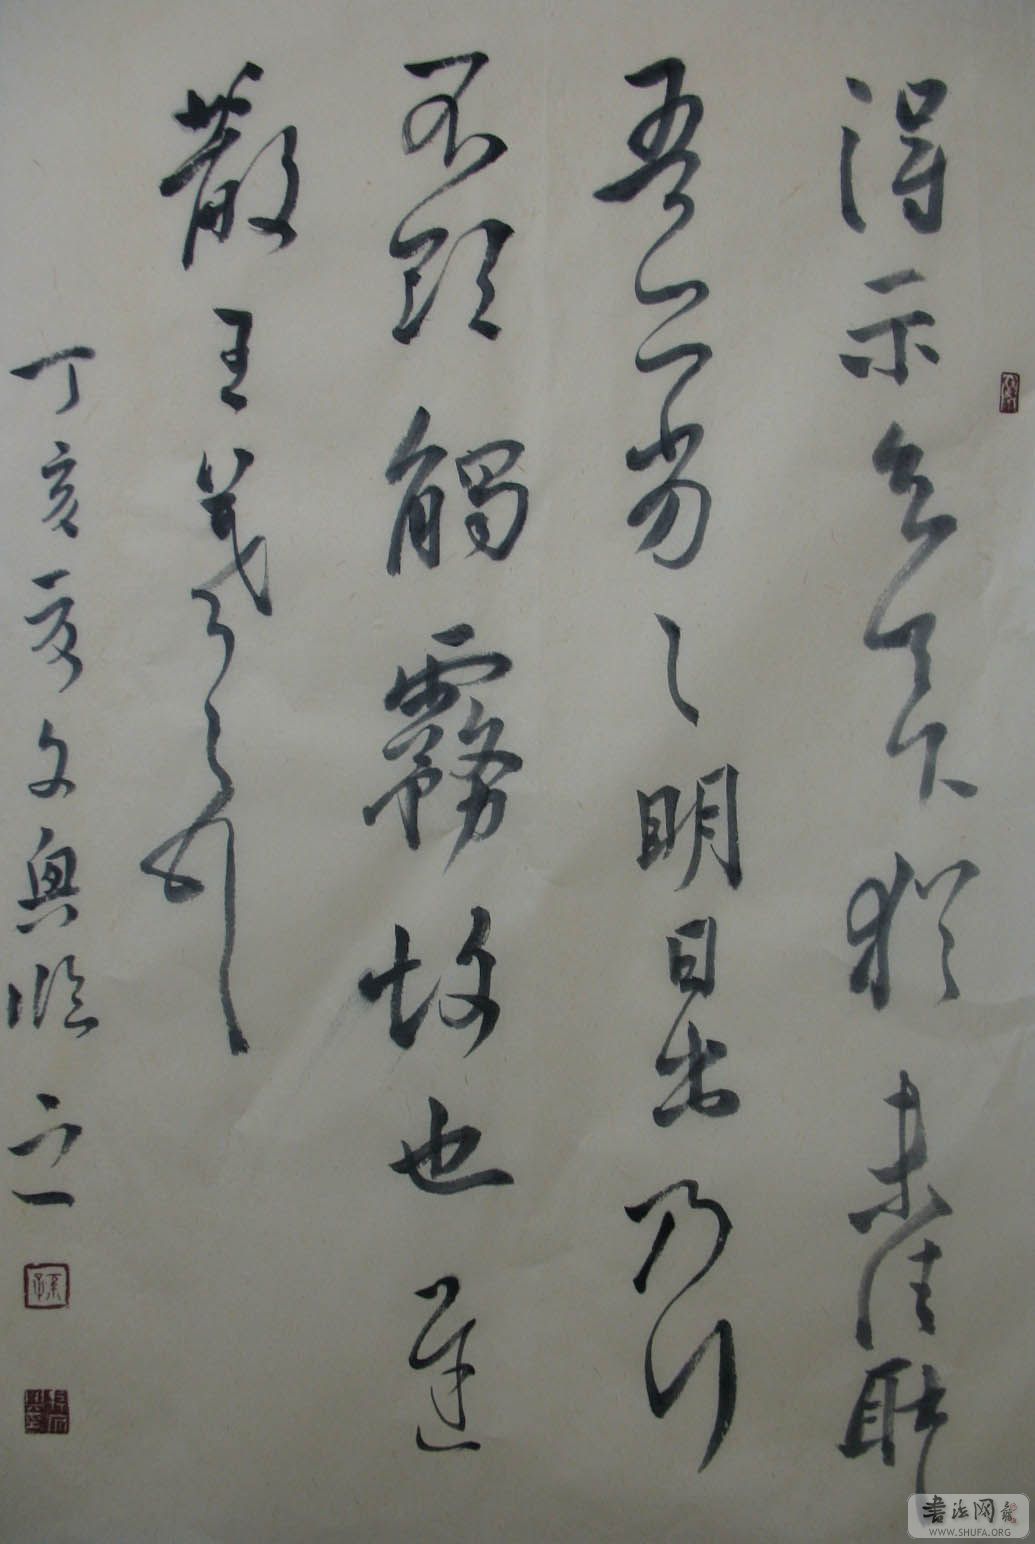 得示知足下猶未佳耿
吾亦劣劣明日出乃行
不欲觸霧故也遲
散王羲之頓首
丁亥夏文興臨之
書法网
WWW.SHUFA.ORG